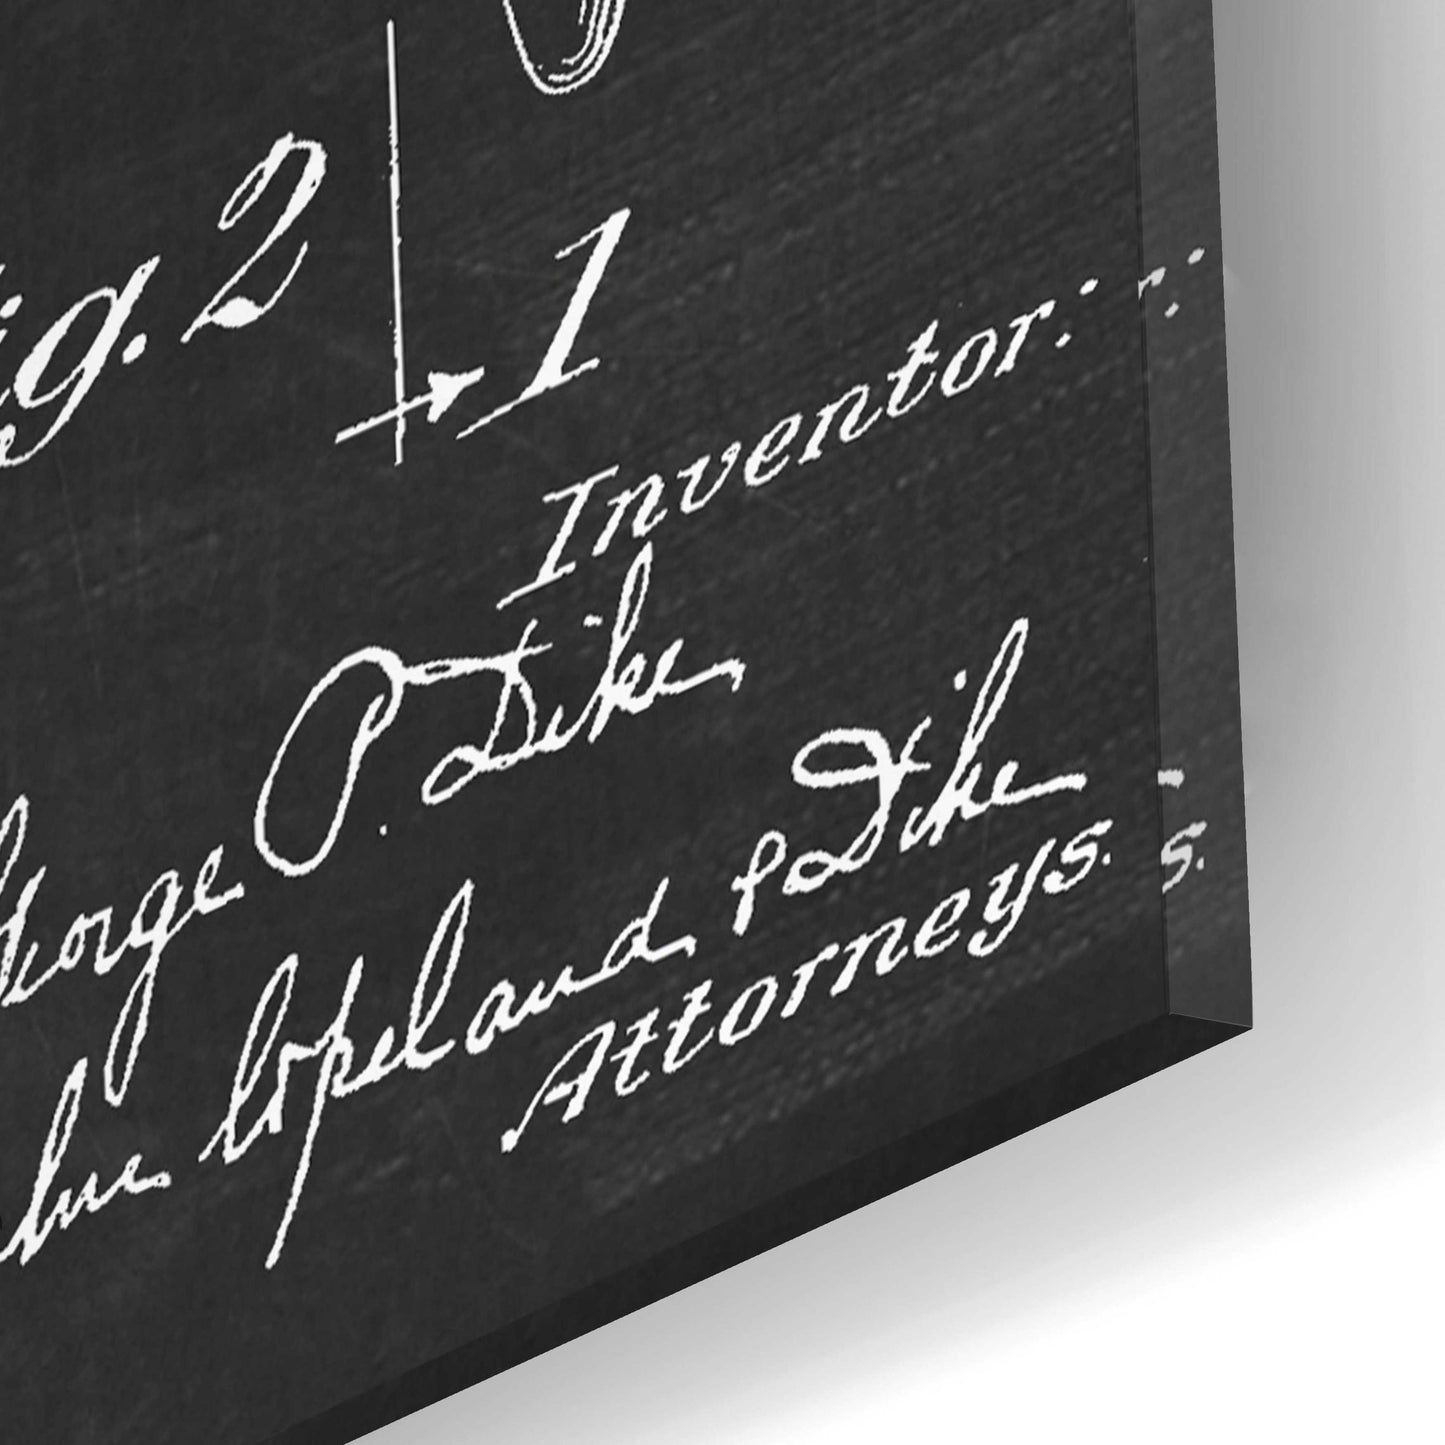 ig. 2
1
Inventor:
George P. Dike,
Copeland & Dike
Attorneys.